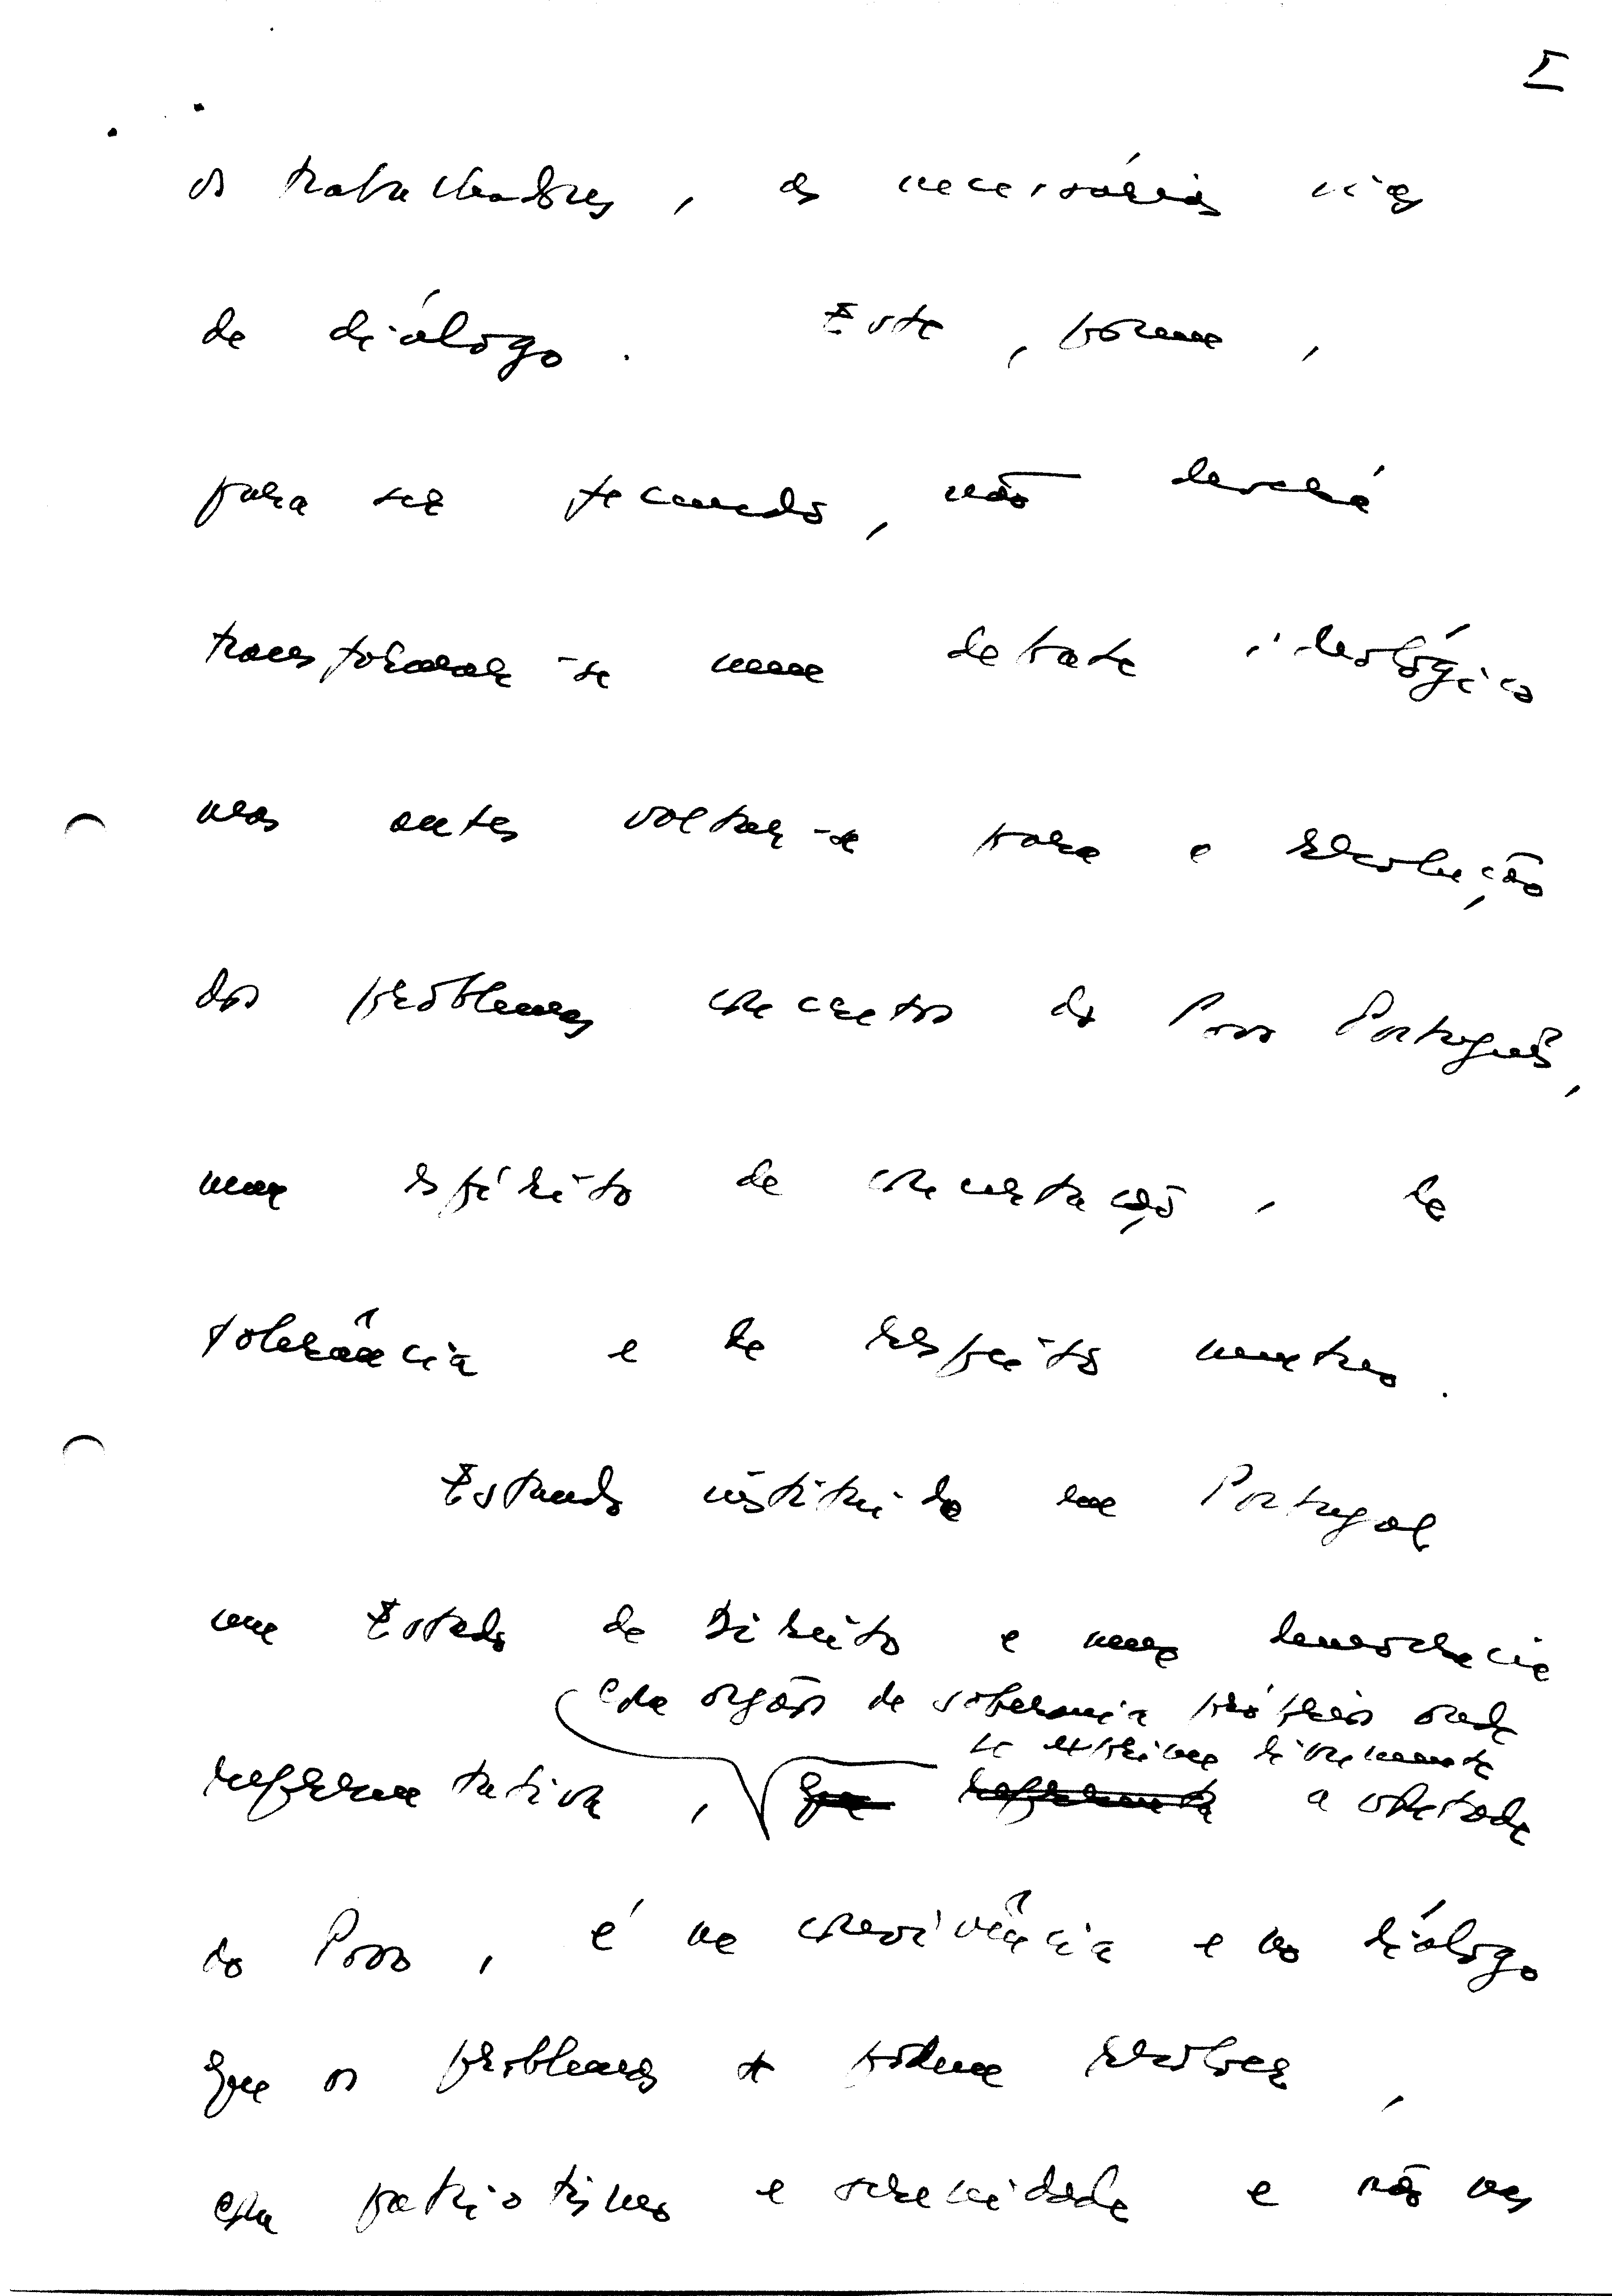 I
os trabalhadores, as necessárias vias
de diálogo. Este, porém,
para ser fecundo, não deverá
transformar-se num debate ideológico
mas antes voltar-se para a resolução
dos problemas concretos do Povo Português,
num espírito de concertação, de
tolerância e de respeito mútuo.
Estando instituido em Portugal
um Estado de Direito e uma democracia
com orgãos de soberania próprios onde
se exprime livremente
representativa, que representa a vontade
do Povo, é na convivência e no diálogo
que os problemas se podem resolver,
com patriotismo e serenidade e não nas